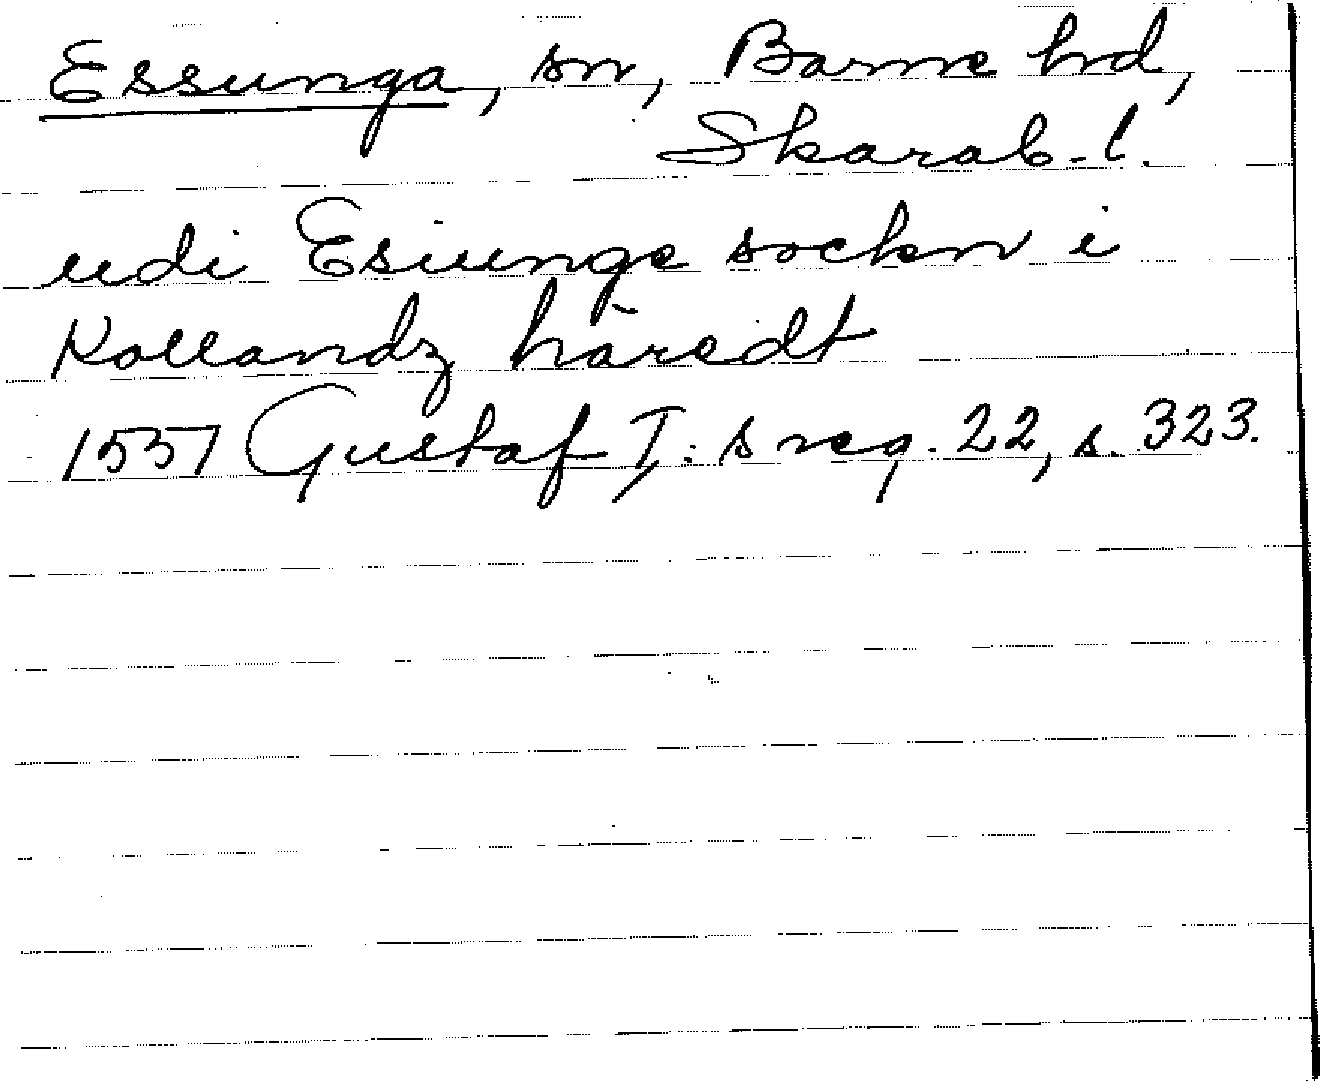 Essunga, sn, Barne hd,
Skarab. l.
udi Esiunge sockn i
Kollandz häredt
1557 Gustaf I:s reg. 22, s. 323.